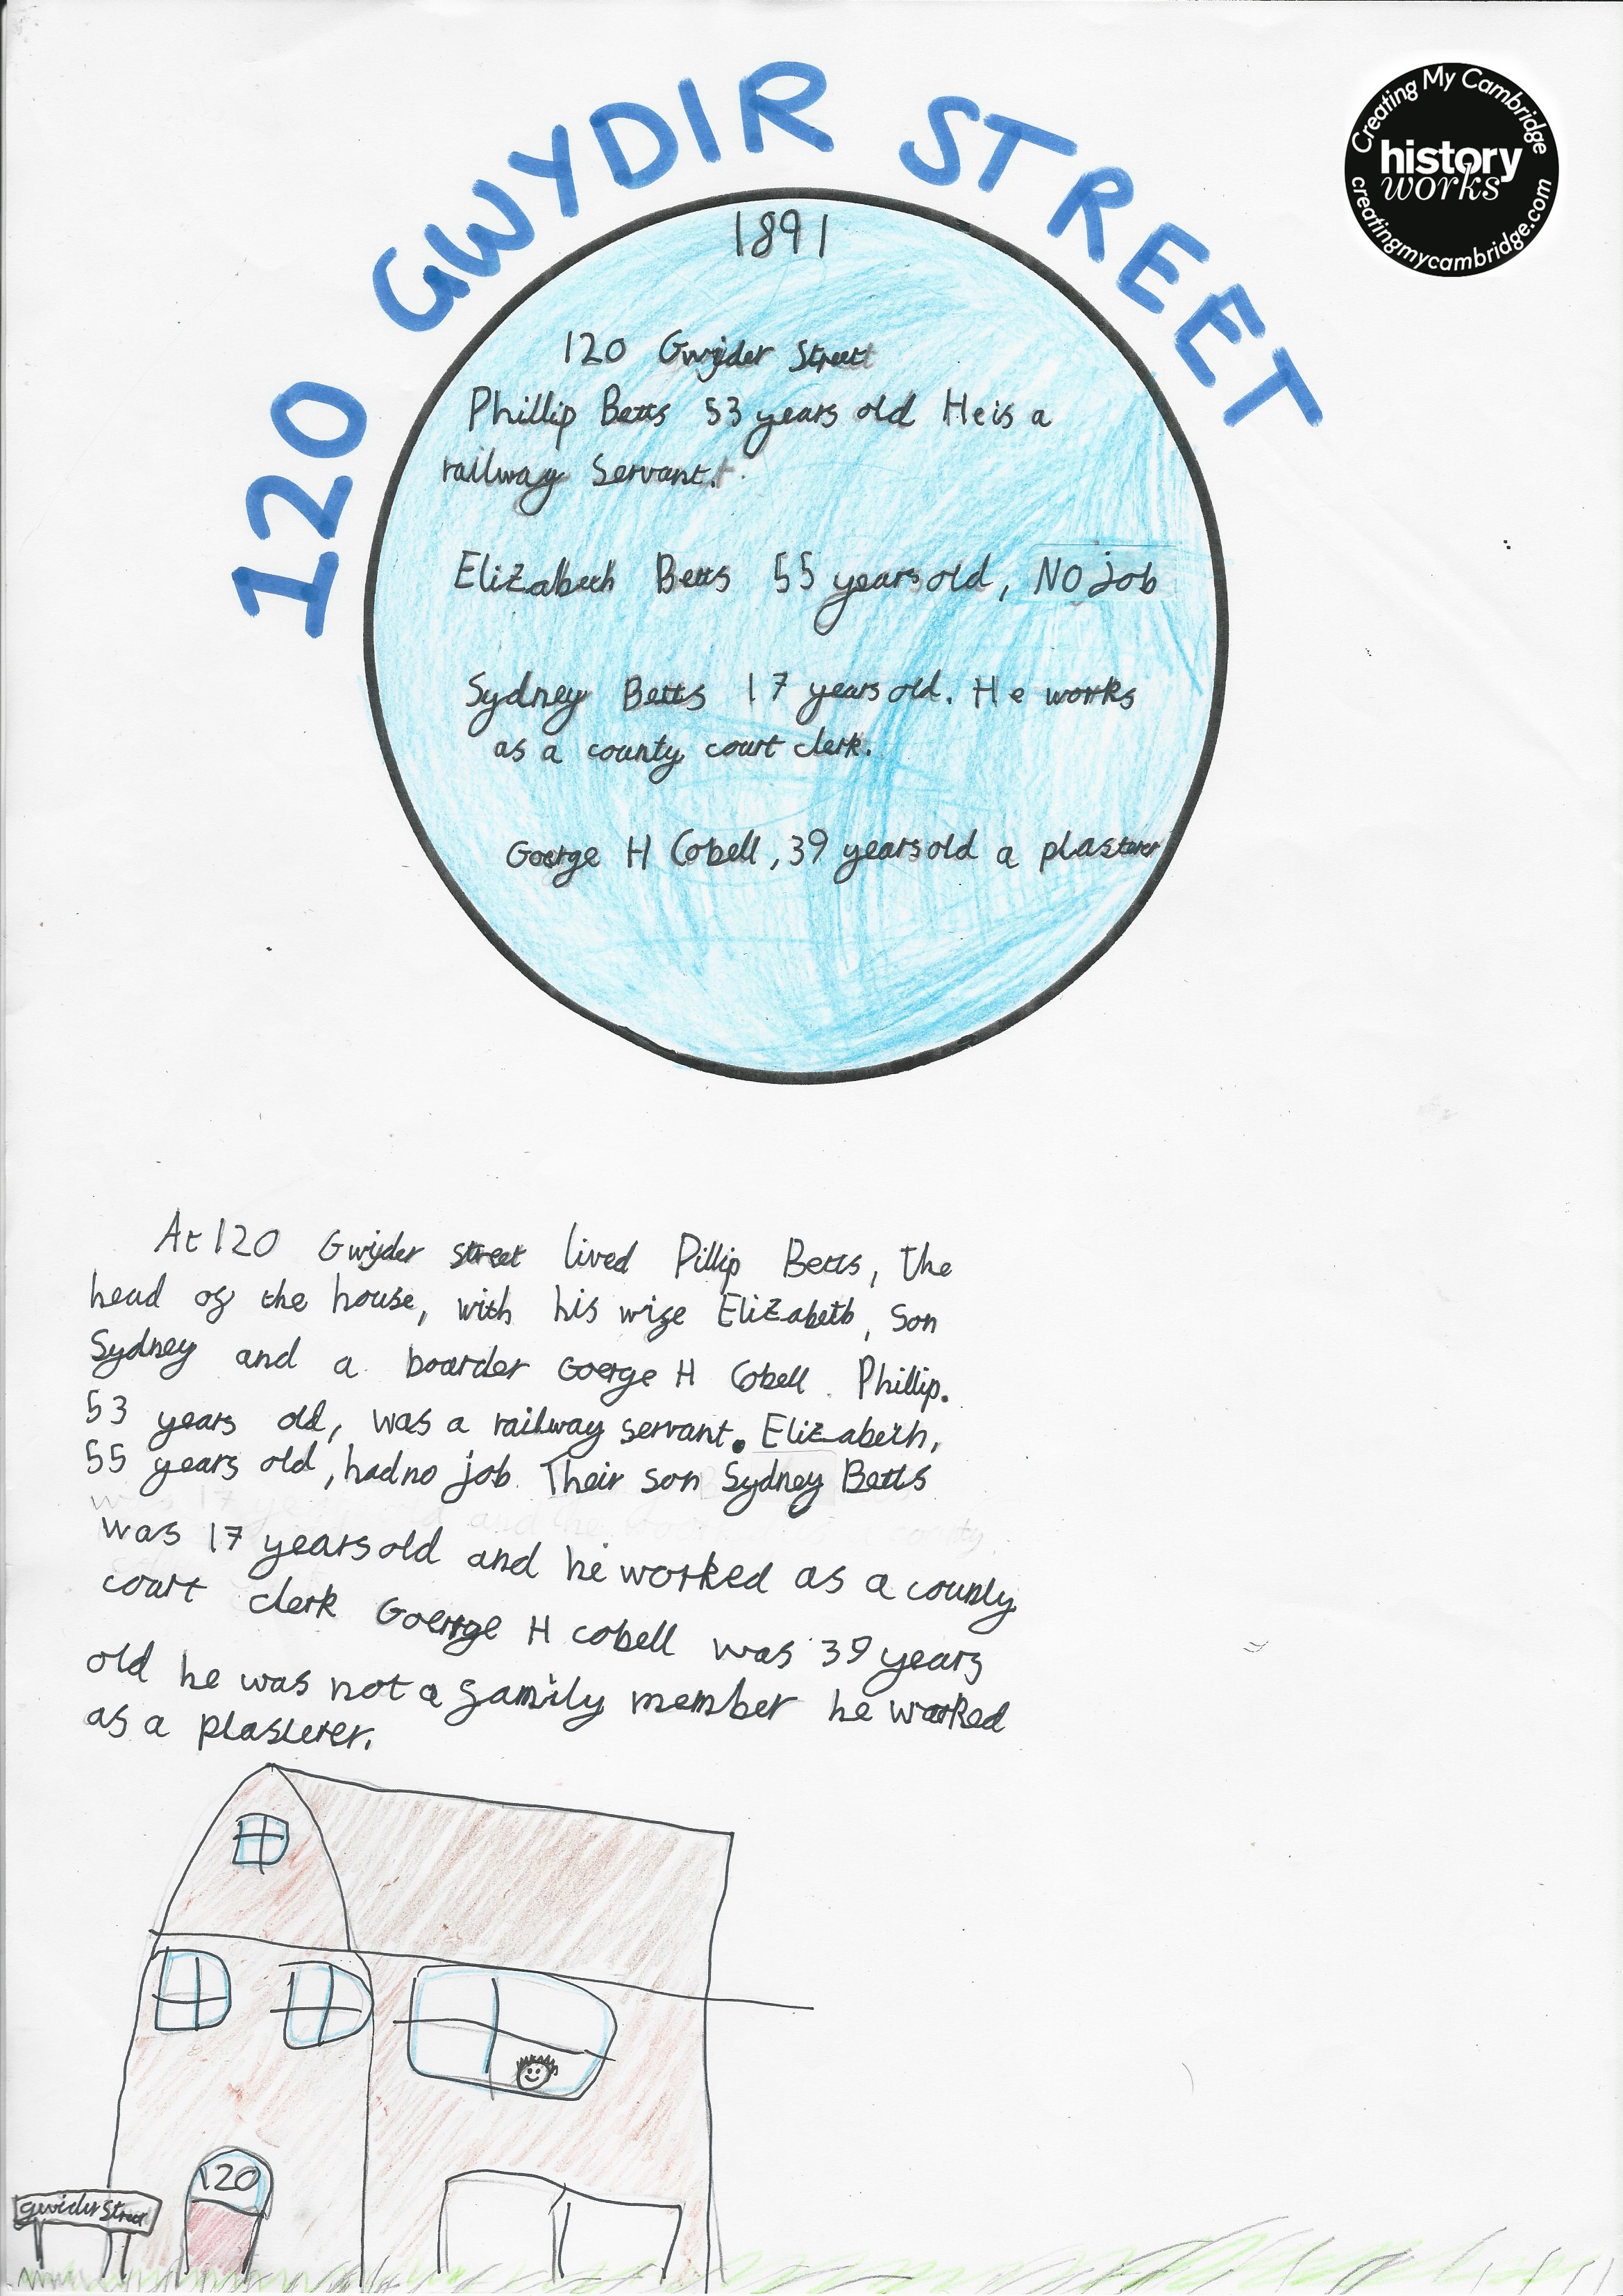 120 GWYDIR STREET
Creating My Cambridge
history
works
creatingmycambridge.com
1891
120 Gwyder Street
Phillip Betts 53 years old He is a
railway Servant.
Elizabeth Betts 55 years old, NO job
Sydney Betts 17 years old. He works
as a county court clerk.
Goerge H Cobell, 39 years old a plasterer
At 120 Gwyder street lived Pillip Betts, the
head of the house, with his wife Elizabeth, Son
Sydney and a boarder Goerge H Cobell. Phillip.
53 years old, was a railway servant. Elizabeth,
55 years old, had no job. Their son Sydney Betts
was 17 years old and he worked as a county
court clerk Goerge H cobell was 39 years
old he was not a family member he worked
as a plasterer.
120
gwider Street